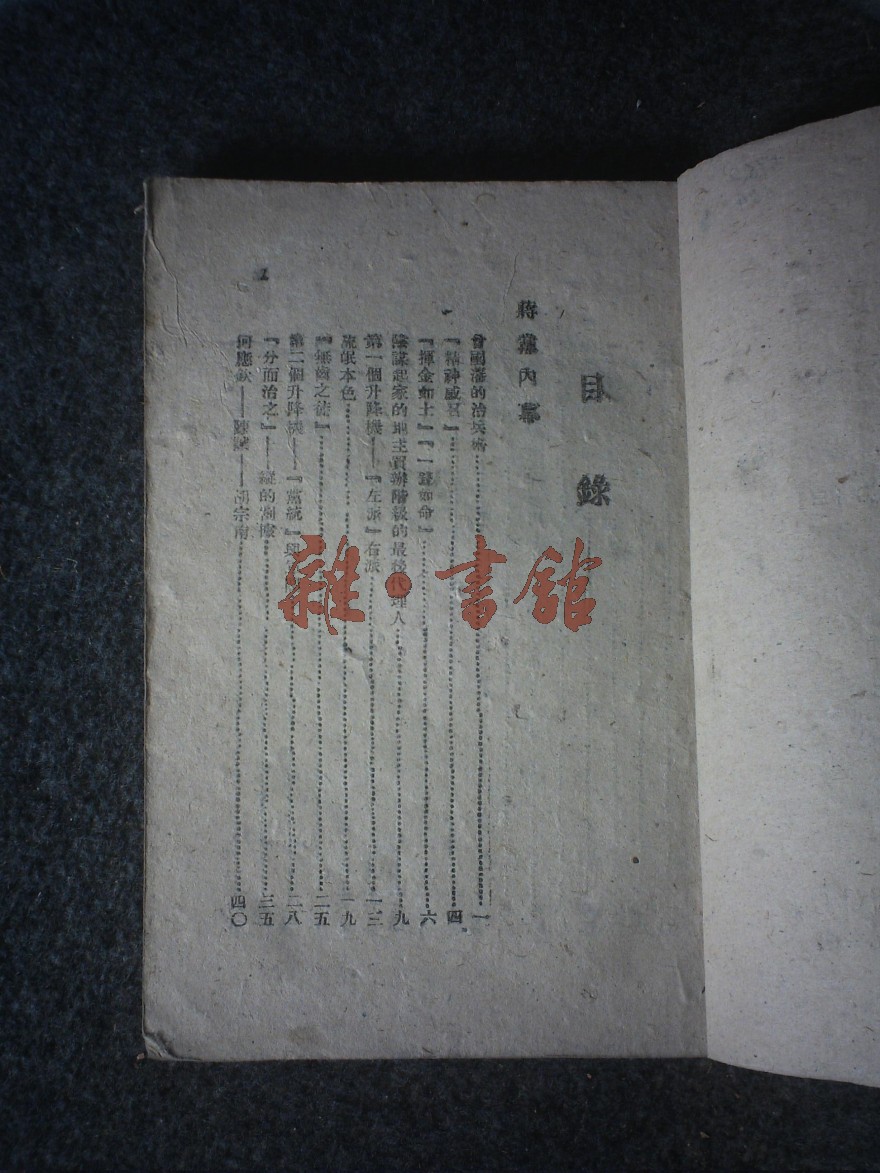 目錄
蔣黨內幕
曾國藩的治兵語 一
『精神威召』 四
『揮金如土』『一錢如命』 六
陰謀起家的地主買辦階級的最後代理人 九
第一個升降機——『左派』右派 一三
流氓本色 一九
『無齒之徒』 二五
第二個升降機——『黨統』與 二八
『分而治之』——縱的割據 三五
何應欽——陳誠——胡宗南 四〇
1
雜·書館